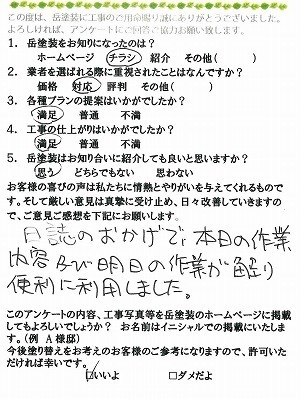 この度は、岳塗装に工事のご用命賜り誠にありがとうございました。
よろしければ、アンケートにご回答ご協力お願い致します。
1. 岳塗装をお知りになったのは？
ホームページ チラシ 紹介 その他( )
2. 業者を選ばれる際に重視されたことはなんですか？
価格 対応 評判 その他( )
3. 各種プランの提案はいかがでしたか？
満足 普通 不満
4. 工事の仕上がりはいかがでしたか？
満足 普通 不満
5. 岳塗装はお知り合いに紹介しても良いと思いますか？
思う どちらでもない 思わない
お客様の喜びの声は私たちに情熱とやりがいを与えてくれるものです。
そして厳しい意見は真摯に受け止め、日々改善していきますので、ご意見ご感想を下記にお願いします。
日誌のおかげで、本日の作業
内容及び明日の作業が解り
便利に利用しました。
このアンケートの内容、工事写真等を岳塗装のホームページに掲載
してもよろしいでしょうか？ お名前はイニシャルでの掲載にいたしま
す。(例 A様邸)
今後塗り替えをお考えのお客様のご参考になりますので、許可いた
だければ幸いです。
☑いいよ □ダメだよ